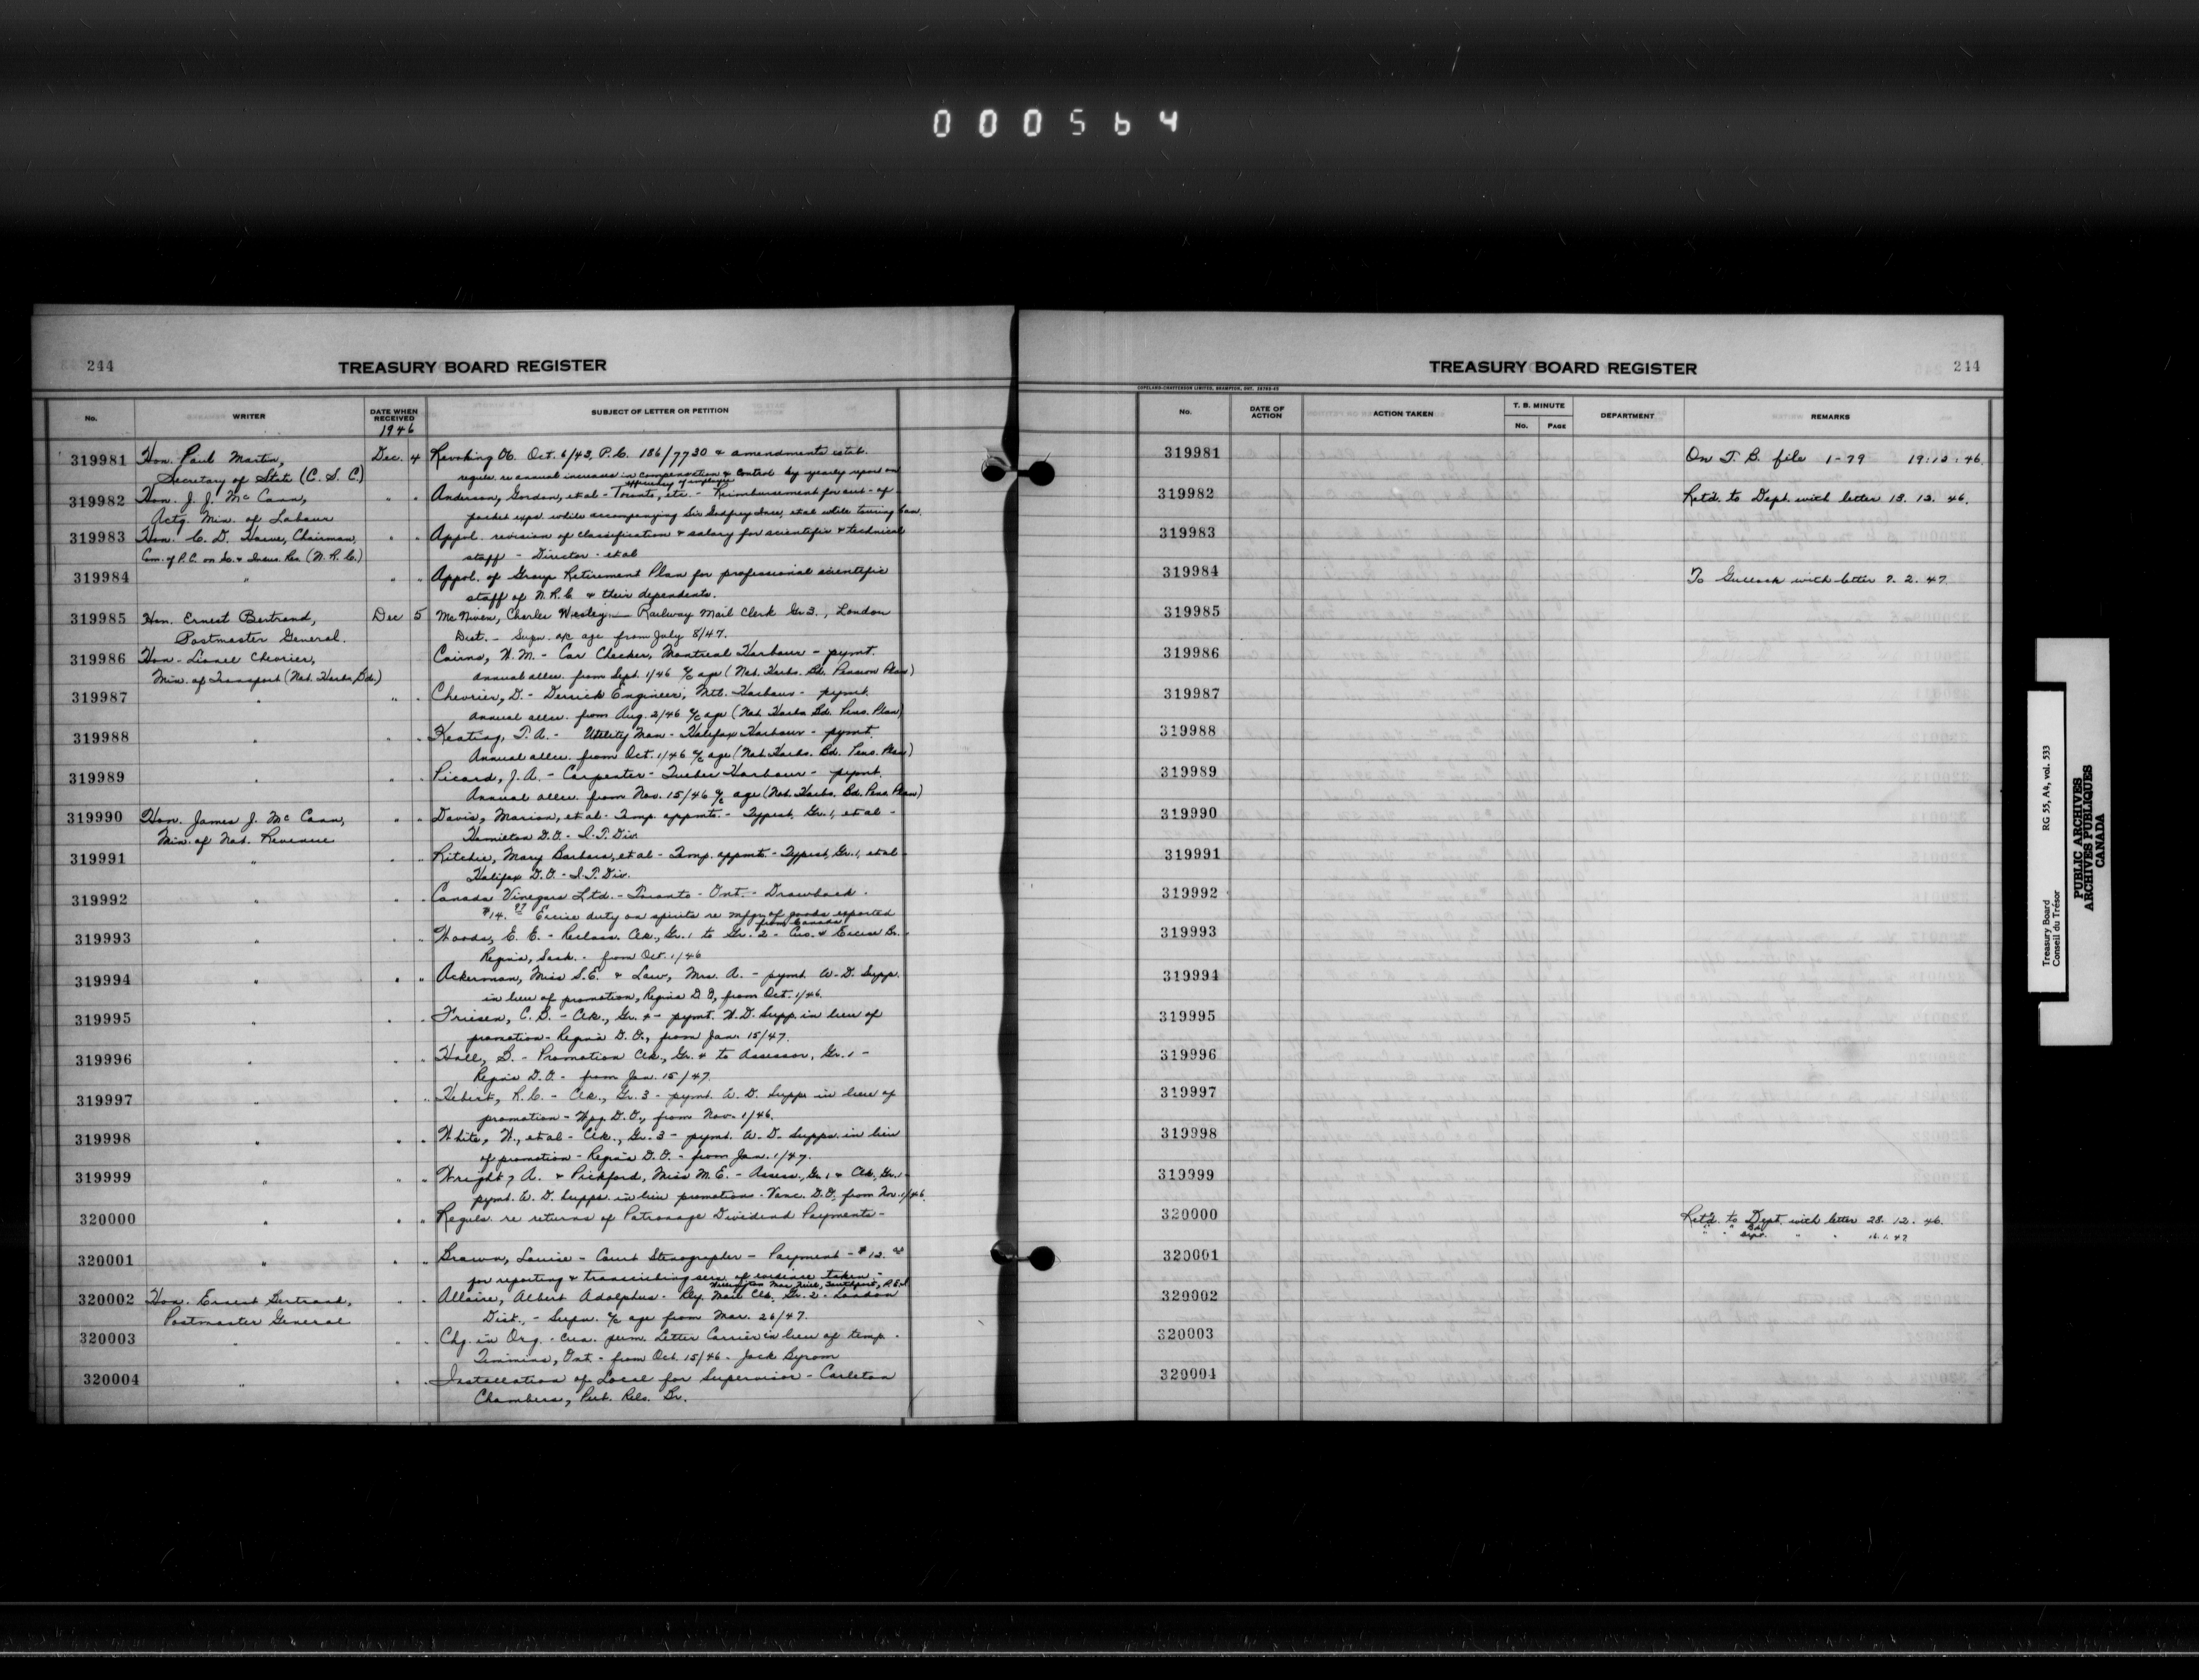 000564
244
TREASURY BOARD REGISTER
No.
WRITER
DATE WHEN RECEIVED
1946
SUBJECT OF LETTER OR PETITION
319981 Hon. Paul Martin, Dec. 4 Revoking Ob. Oct. 6/43, P.C. 186/7730 & amendments estab.
Secretary of State (C. S. C.) reguls. re annual increases in compensation & control by yearly report on
efficiency of employees
319982 Hon. J. J. McCann, " " Anderson, Gordon, et al - Toronto, etc. - Reimbursement for out-of
Actg. Min. of Labour pocket exps. while accompanying Sir Godfrey Ince, et al while touring Can.
319983 Hon. C. D. Howe, Chairman, " " Appvl. revision of classification & salary for scientific & technical
Com. of P.C. on Sc. & Indus. Res. (N. R. C.) staff - Director - et al
319984 " " " Appvl. of Group Retirement Plan for professional scientific
staff of N.R.C. & their dependents.
319985 Hon. Ernest Bertrand, Dec 5 McNiven, Charles Wesley - Railway Mail Clerk Gr 3., London
Postmaster General. Dist. - Supn. a/c age from July 8/47.
319986 Hon. Lionel Chevrier, Cairns, W. M. - Car Checker, Montreal Harbour - pymt.
Min. of Transport (Nat. Harbs. Bd.) annual allce. from Sept. 1/46 a/c age (Nat. Harbs. Bd. Pension Plan)
319987 " " " Chevrier, D. - Derrick Engineer, Mtl. Harbour - pymt.
Annual allce. from Aug. 2/46 a/c age (Nat. Harbs. Bd. Pens. Plan)
319988 " " " Keating, T. A. - Utility Man - Halifax Harbour - pymt.
Annual allce. from Oct. 1/46 a/c age (Nat. Harbs. Bd. Pens. Plan)
319989 " " " Picard, J. A. - Carpenter - Quebec Harbour - pymt.
Annual allce. from Nov. 15/46 a/c age (Nat. Harbs. Bd. Pens. Plan)
319990 Hon. James J. McCann, " " Davis, Marion, et al - Temp. appmts. - Typist, Gr. 1, et al -
Min. of Nat. Revenue Hamilton D.O. - I. T. Div.
319991 " " " Ritchie, Mary Barbara, et al - Temp. appmt. - Typist, Gr. 1, et al -
Halifax D.O. - I. T. Div.
319992 " " " Canada Vinegars Ltd. - Toronto - Ont. - Drawback -
$14.97 Excise duty on spirits re mfgr. of goods exported
from Canada
319993 " " " Woods, E. E. - Reclass. Clk., Gr. 1 to Gr. 2 - Cus. & Excise Br. -
Regina, Sask. - from Oct. 1/46
319994 " " " Ackerman, Miss S. E. & Law, Mrs. A. - pymt. W. D. Supp.
in lieu of promotion, Regina D. O., from Oct. 1/46.
319995 " " " Friesen, C. G. - Clk., Gr. 4 - pymt. W. D. Supp. in lieu of
promotion - Regina D. O., from Jan. 15/47.
319996 " " " Hall, S. - Promotion Clk., Gr. 4 to Assessor, Gr. 1 -
Regina D. O. - from Jan. 15/47.
319997 " " " Hebert, R. C. - Clk., Gr. 3 - pymt. W. D. Supp. in lieu of
promotion - Wpg. D. O., from Nov. 1/46.
319998 " " " White, W., et al - Clk., Gr. 3 - pymt. W. D. Supps. in lieu
of promotion - Regina D. O. - from Jan. 1/47.
319999 " " " Wright, A. & Pickford, Miss M. E. - Assess., Gr. 1 & Clk., Gr. 1 -
pymt. W. D. Supps. in lieu promotions - Vanc. D. O. from Nov. 1/46.
320000 " " " Reguls. re returns of Patronage Dividend Payments -
320001 " " " Brown, Louise - Court Stenographer - Payment - $12.
for reporting & transcribing serv. of evidence taken -
Wellington MacNeill, Southport, P.E.I.
320002 Hon. Ernest Bertrand, " " Allaire, Albert Adolphus - Rly. Mail Clk. Gr. 2 - London
Postmaster General Dist., - Supn. a/c age from Mar. 26/47.
320003 " " " Chg. in Org. - Crea. perm. Letter Carrier in lieu of temp. -
Timmins, Ont. - from Oct. 15/46 - Jack Byrom
320004 " " " Installation of Local for Supervisor - Carleton
Chambers, Pub. Rels. Br.
TREASURY BOARD REGISTER
244
COPELAND-CHATTERSON LIMITED, BRAMPTON, ONT.
No.
DATE OF ACTION
ACTION TAKEN
T. B. MINUTE
No.
PAGE
DEPARTMENT
REMARKS
319981 On T. B. file 1-79 19.12.46.
319982 Retd. to Dept. with letter 13. 12. 46.
319983
319984 To with letter 7. 2. 47.
319985
319986
319987
319988
319989
319990
319991
319992
319993
319994
319995
319996
319997
319998
319999
320000 Retd. to Dept. with letter 28. 12. 46.
" " Dept. " " 16.1.47
320001
320002
320003
320004
Treasury Board RG 55, A4, vol. 533
Conseil du Trésor
PUBLIC ARCHIVES
ARCHIVES PUBLIQUES
CANADA